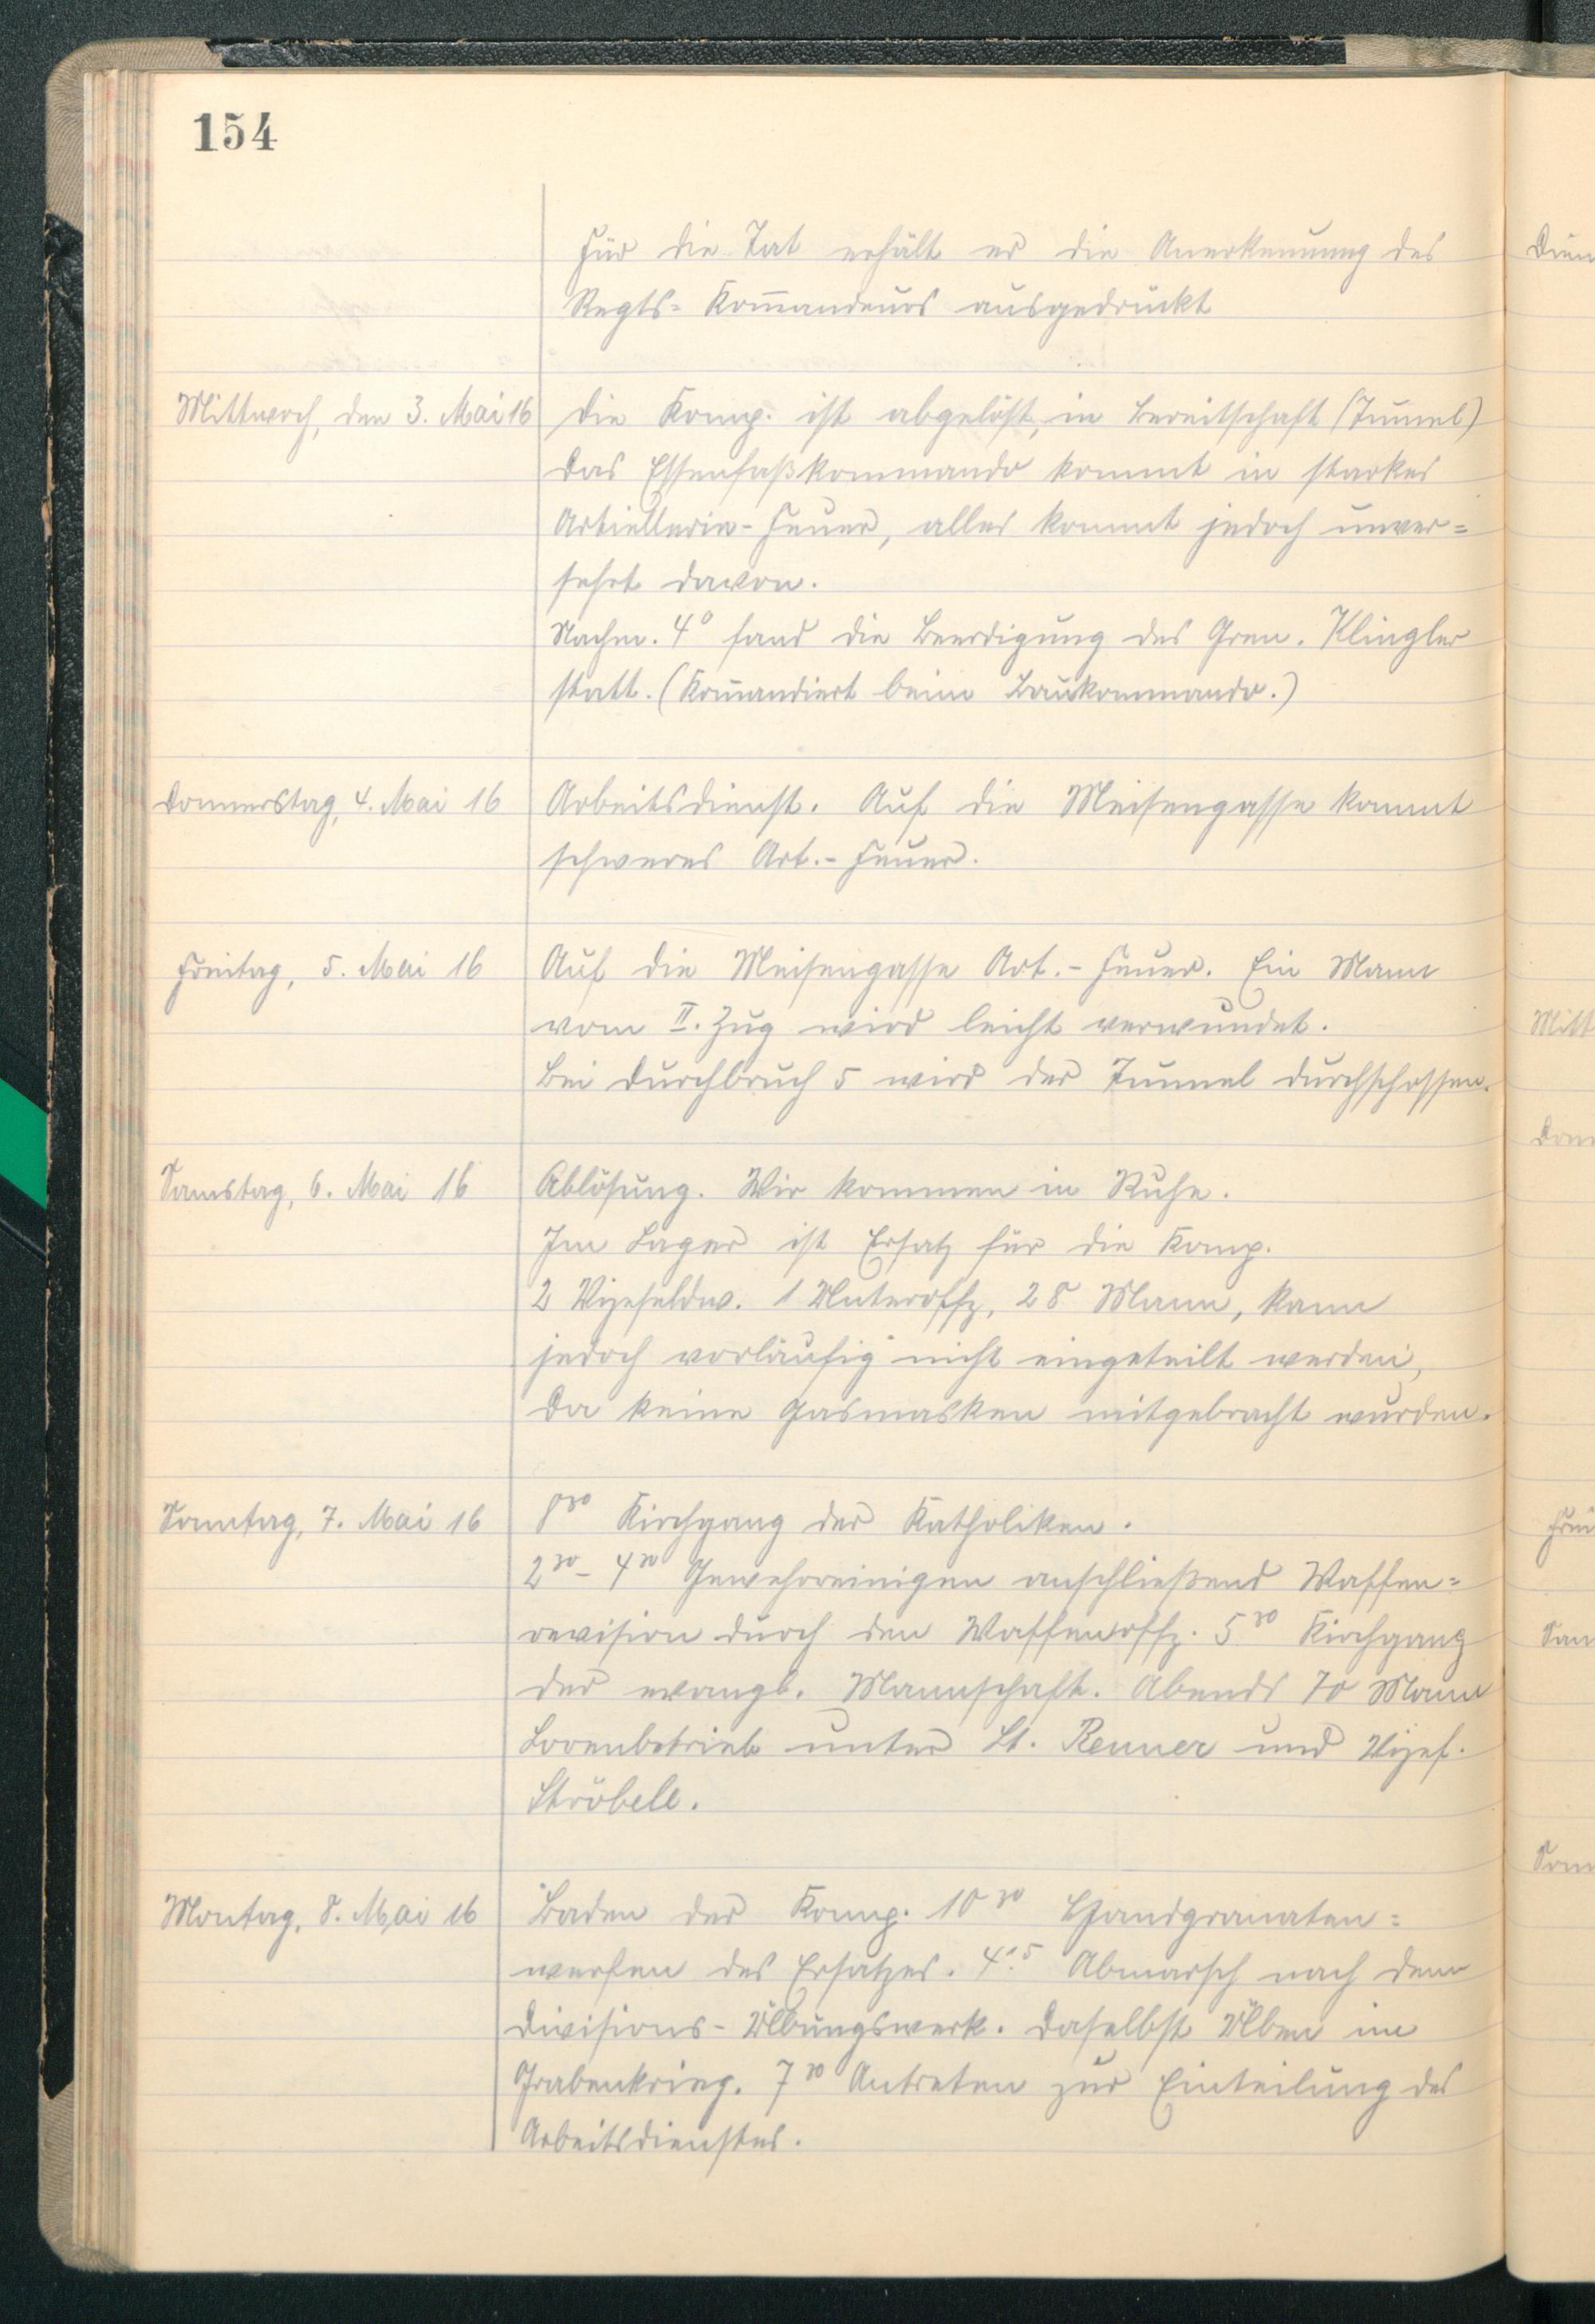 154
Für die Tat erhält er die Anerkennung des
Regts= Kom̅andeurs ausgedrückt
Mittwoch, den 3. Mai 16
Die Komp. ist abgelöst, in Bereitschaft (Tunnel)
Das Essenfaßkommando kommt in starkes
Artiellerie-Feuer, alles kommt jedoch unver=
sehrt davon.
Nachm. 4⁰ fand die Beerdigung des Gren. Klingler
statt. (Kom̅andiert beim Baukommando.)
Donnerstag, 4. Mai 16
Arbeitsdienst. Auf die Meisengasse kommt
schweres Art.-Feuer.
Freitag, 5. Mai 16
Auf die Meisengasse Art.-Feuer. Ein Mann
vom II. Zug wird leicht verwundet.
Bei Durchbruch 5 wird der Tunnel durchschossen.
Samstag, 6. Mai 16
Ablösung. Wir kommen in Ruhe.
Im Lager ist Ersatz für die Komp.
2 Vizefeldw. 1 Unteroffz, 28 Mann, kann
jedoch vorläufig nicht eingeteilt werden,
da keine Gasmasken mitgebracht wurden.
Sonntag, 7. Mai 16
8³⁰ Kirchgang der Katholiken.
2³⁰ - 4³⁰ Gewehrreinigen anschließend Waffen=
revision durch den Waffenoffz. 5³⁰ Kirchgang
der evangl. Mannschaft. Abends 70 Mann
Lorenbetrieb unter Lt. Renner und Vizef.
Ströbele.
Montag, 8. Mai 16
Baden der Komp. 10³⁰ Handgranaten=
werfen des Ersatzes. 4¹⁵ Abmarsch nach dem
Divisions-Übungswerk. Daselbst Üben im
Grabenkrieg. 7³⁰ Antreten zur Einteilung des
Arbeitsdienstes.
Dien
Mitt
Don
Frei
Sam
Son